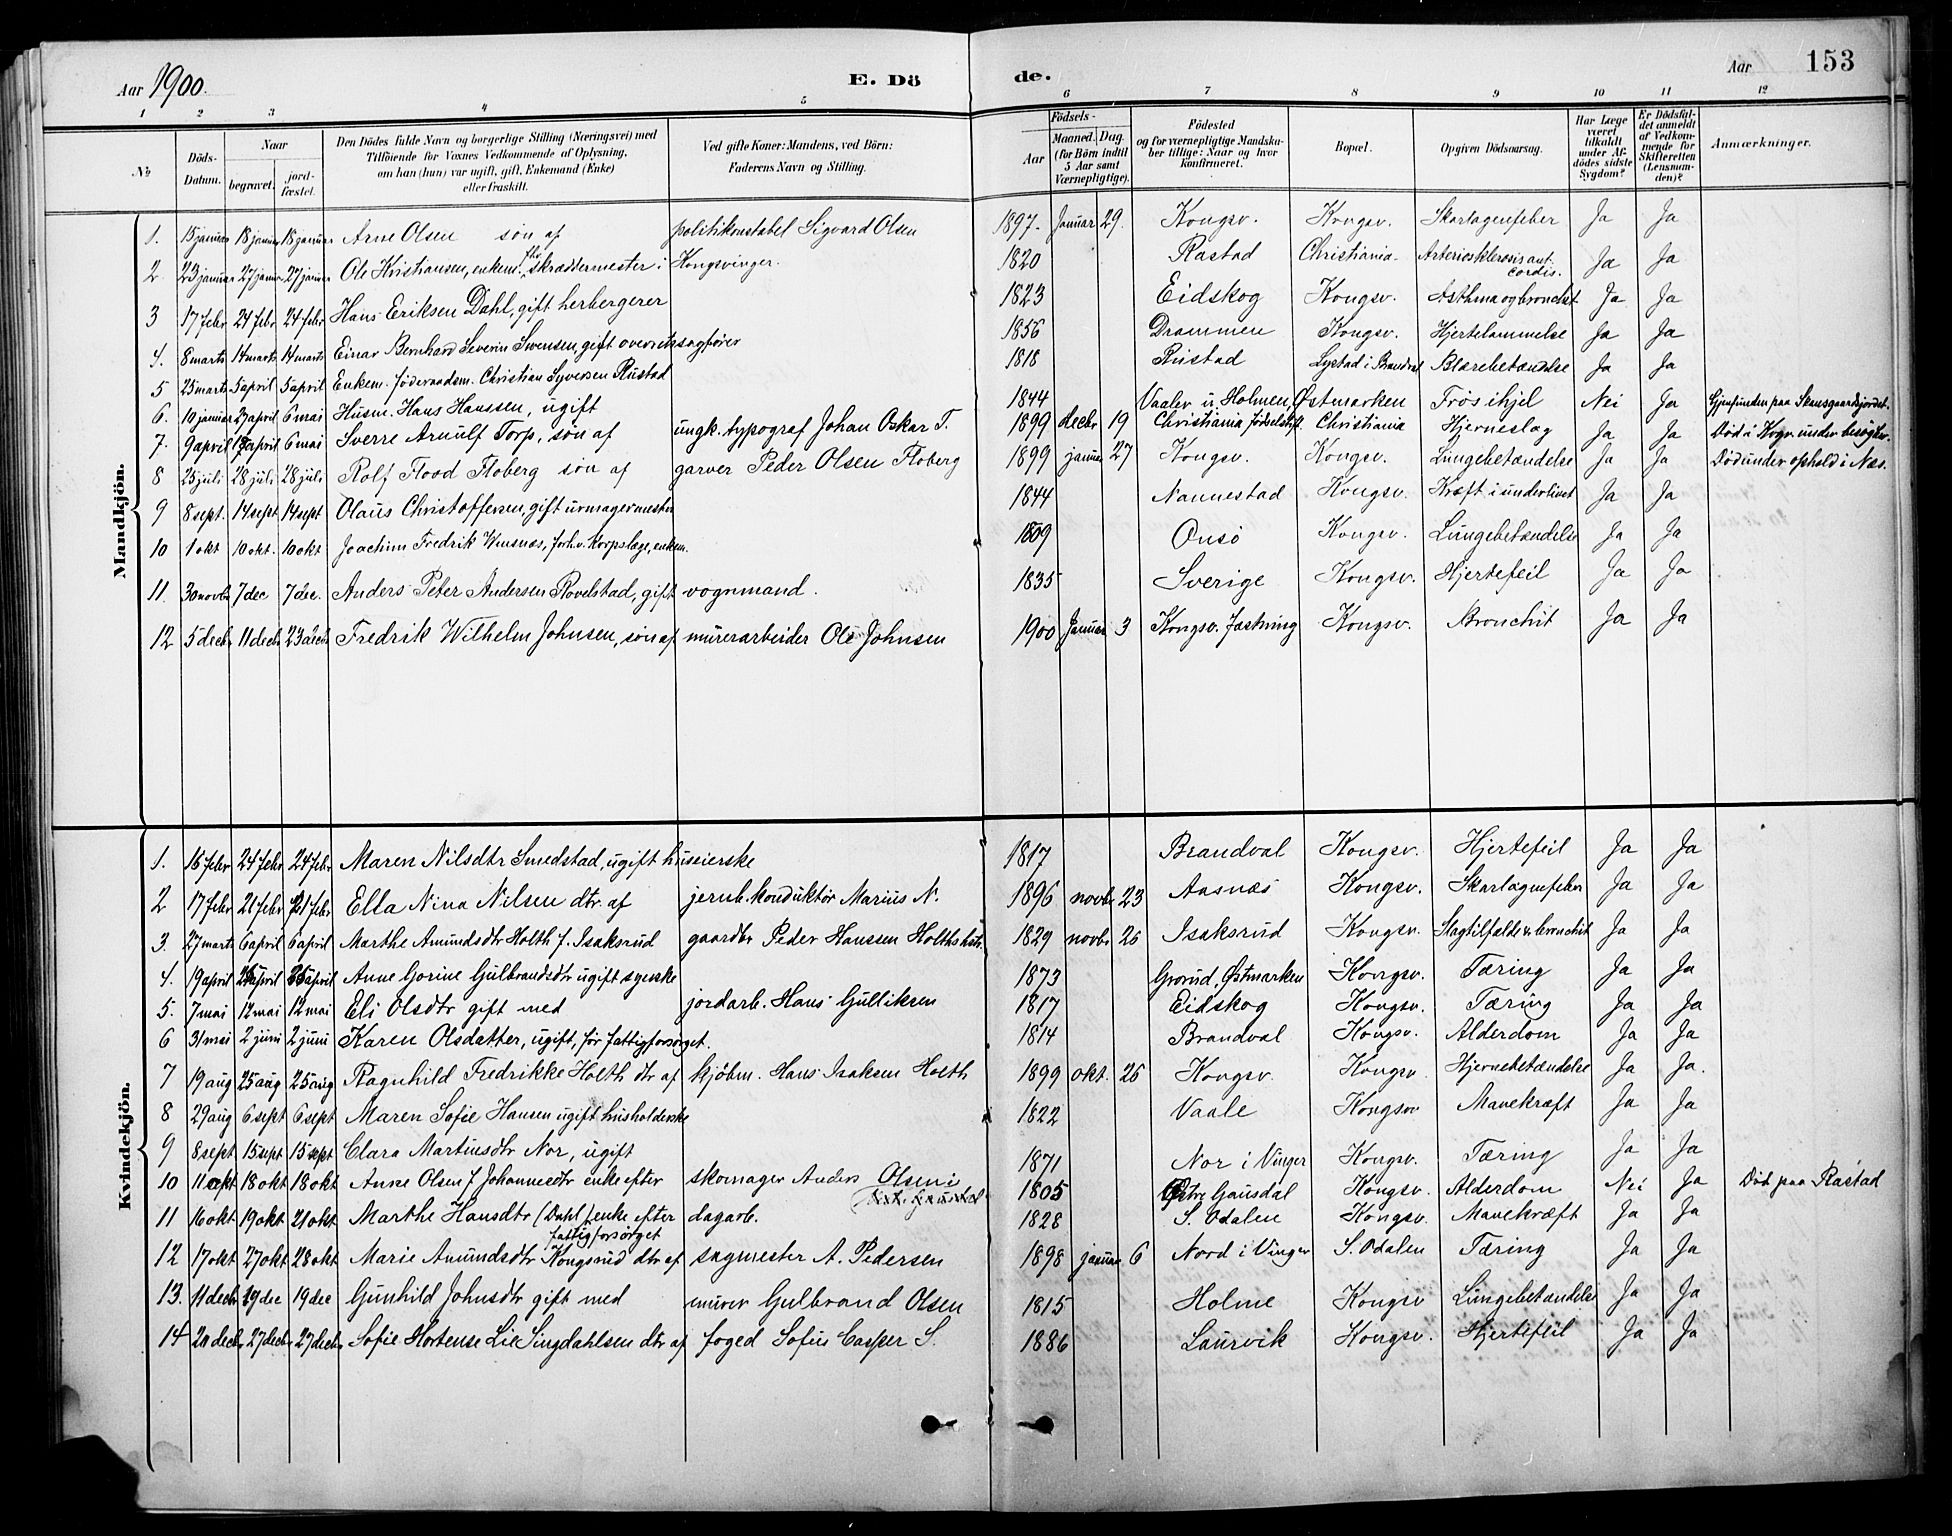 Aar 1900. E. Dö de. Aar 153
1 2 3 4 5 6 7 8 9 10 11 12
No Döds-Datum. Naar begravet. jordfæstet. Den Dödes fulde Navn og borgerlige Stilling (Næringsvei) med Tilföiende for Voxnes Vedkommende af Oplysning, om han (hun) var ugift, gift, Enkemand (Enke) eller fraskilt. Ved gifte Koner: Mandens, ved Börn: Faderens Navn og Stilling. Aar Födsels- Maaned. Dag. (for Börn indtil 5 Aar samt Værnepligtige). Födested og for værnepligtige Mandskaber tillige: Naar og hvor konfirmeret. Bopæl. Opgiven Dödsaarsag. Har Læge været tilkaldt under Afdödes sidste Sygdom? Er Dödsfaldet anmeldt af Vedkommende for Skifteretten (Lensmanden)? Anmærkninger.
Mandkjön.
1. 15 januar 18 januar 18 januar Arne Olsen søn af politikonstabel Sigvard Olsen 1897. Januar 29. Kongsv. Kongsv. Skarlagensfeber Ja Ja
2 23 januar 27 januar 27 januar Ole Kristiansen, enkem. fhv. skræddermester i Kongsvinger. 1820 Rastad Christiania Arteriosklerosis aut. cordis. Ja Ja
3 17 febr 24 febr 24 febr Hans Eriksen Dahl, gift herbergerer 1823 Eidskog Kongsv. Asthma og bronchit Ja Ja
4. 8 marts 14 marts 14 marts Einar Bernhard Severin Svensen, gift overretssagfører 1856 Drammen Kongsv. Hjertelammelse Ja Ja
5 25 marts 5 april 5 april Enkem. føderaadsm. Christian Syversen Rustad 1818 Rustad Lystad i Brandval Blærebetændelse Ja Ja
6. 10 januar 29 april 6 mai Husm. Hans Hanssen, ugift 1844 Vaaler u Holmen, Østmarken Frøs ihjel Nei Ja Gjenfunden paa Skansgaardsjordet.
7. 9 april 18 april 6 mai Sverre Arnulf Torp, søn af ungk. typograf Johan Oskar T. 1899 decbr 19 Christiania fødselsst. Christiania Hjerneslag Ja Ja Død i Kogv. under besøg her.
8 25 juli 28 juli 28 juli Rolf Flood Floberg søn af garver Peder Olsen Floberg 1899 januar 27 Kongsv. Kongsv. Lungebetændelse Ja Ja Død under ophold i Næs.
9 8 sept. 14 sept 14 sept Olaus Christoffersen, gift urmagermester 1844 Nannestad Kongsv. Kræft i underlivet Ja Ja
10 1 okt 10 okt. 10 okt Joachim Fredrik Wiesnæs, forh.v. Korpslæge, enkem. 1809 Onsø Kongsv. Lungebetændelse Ja Ja
11. 30 novbr 7 dec 7 dec. Anders Peter Andersen Rovelstad, gift vognmand. 1835 Sverige Kongsv. Hjertefeil Ja Ja
12 5 decbr 11 decbr 23 decbr Fredrik Wilhelm Johnsen, søn af murerarbeider Ole Johnsen 1900 Januar 3 Kongsv. fæstning Kongsv. Bronchit Ja Ja
Kvindekjön.
1. 16 febr 24 febr 24 febr Maren Nilsdtr Smedstad, ugift huseierske 1817 Brandval Kongsv. Hjertefeil Ja Ja
2 17 febr 21 febr 21 febr Ella Nina Nilsen dtr. af jernb. konduktør Marius N. 1896 novbr 23 Aasnæs Kongsv. Skarlagensfeber Ja Ja
3. 27 marts 6 april 6 april Marthe Amundsdtr Holth f. Isaksrud gaardbr Peder Hanssen Holths hstr. 1829 novbr 26 Isaksrud Kongsv. Slagtilfælde & bronchit Ja Ja
4. 19 april 25 april 25 april Anne Gorine Gulbrandsdtr ugift syerske 1873 Grorud, Østmarken Kongsv. Tæring Ja Ja
5. 7 mai 12 mai 12 mai Eli Olsdtr gift med jordarb. Hans Gulliksen 1817 Eidskog Kongsv. Tæring Ja Ja
6 31 mai 2 juni 2 juni Karen Olsdatter, ugift, før fattigforsørget. 1814 Brandval Kongsv. Alderdom Ja Ja
7 19 aug 25 aug 25 aug Ragnhild Fredrikke Holth dtr af kjøbm. Hans Isaksen Holth 1899 okt. 26 Kongsv. Kongsv. Hjernebetændelse Ja Ja.
8 29 aug 6 sept 6 sept Maren Sofie Hansen ugift husholderske 1822 Vaale Kongsv Mavekræft Ja Ja
9 8 sept 15 sept 15 sept Clara Martinsdtr Nor, ugift 1871 Nor i Vinger Kongsv. Tæring Ja Ja
10 11 okt 18 okt 18 okt Anne Olsen f Johannesdtr enke efter skomager Anders Olsen i 1805 Østre Gausdal Kongsv. Alderdom Nei Ja Død paa Rastad
11 16 okt 19 okt 21 okt Marthe Hansdtr (Dahl) enke efter fattigforsørget dagarb. 1828 S. Odalen Kongsv. Mavekræft Ja Ja
12 17 okt 27 okt 28 okt Marie Amundsdtr Kongsrud dtr af sagmester A. Pedersen 1898 januar 6 Nord i Vinger S. Odalen Tæring Ja Ja
13. 11 decbr 19 dec 19 dec Gunhild Johnsdtr gift med murer Gulbrand Olsen 1815 Holme Kongsv Lungebetændelse Ja Ja
14 20 decbr 27 decbr 27 decbr Sofie Hortense Lie Singdahlsen dtr af foged Sofus Casper S. 1886 Laurvik Kongsv. Hjertefeil Ja Ja